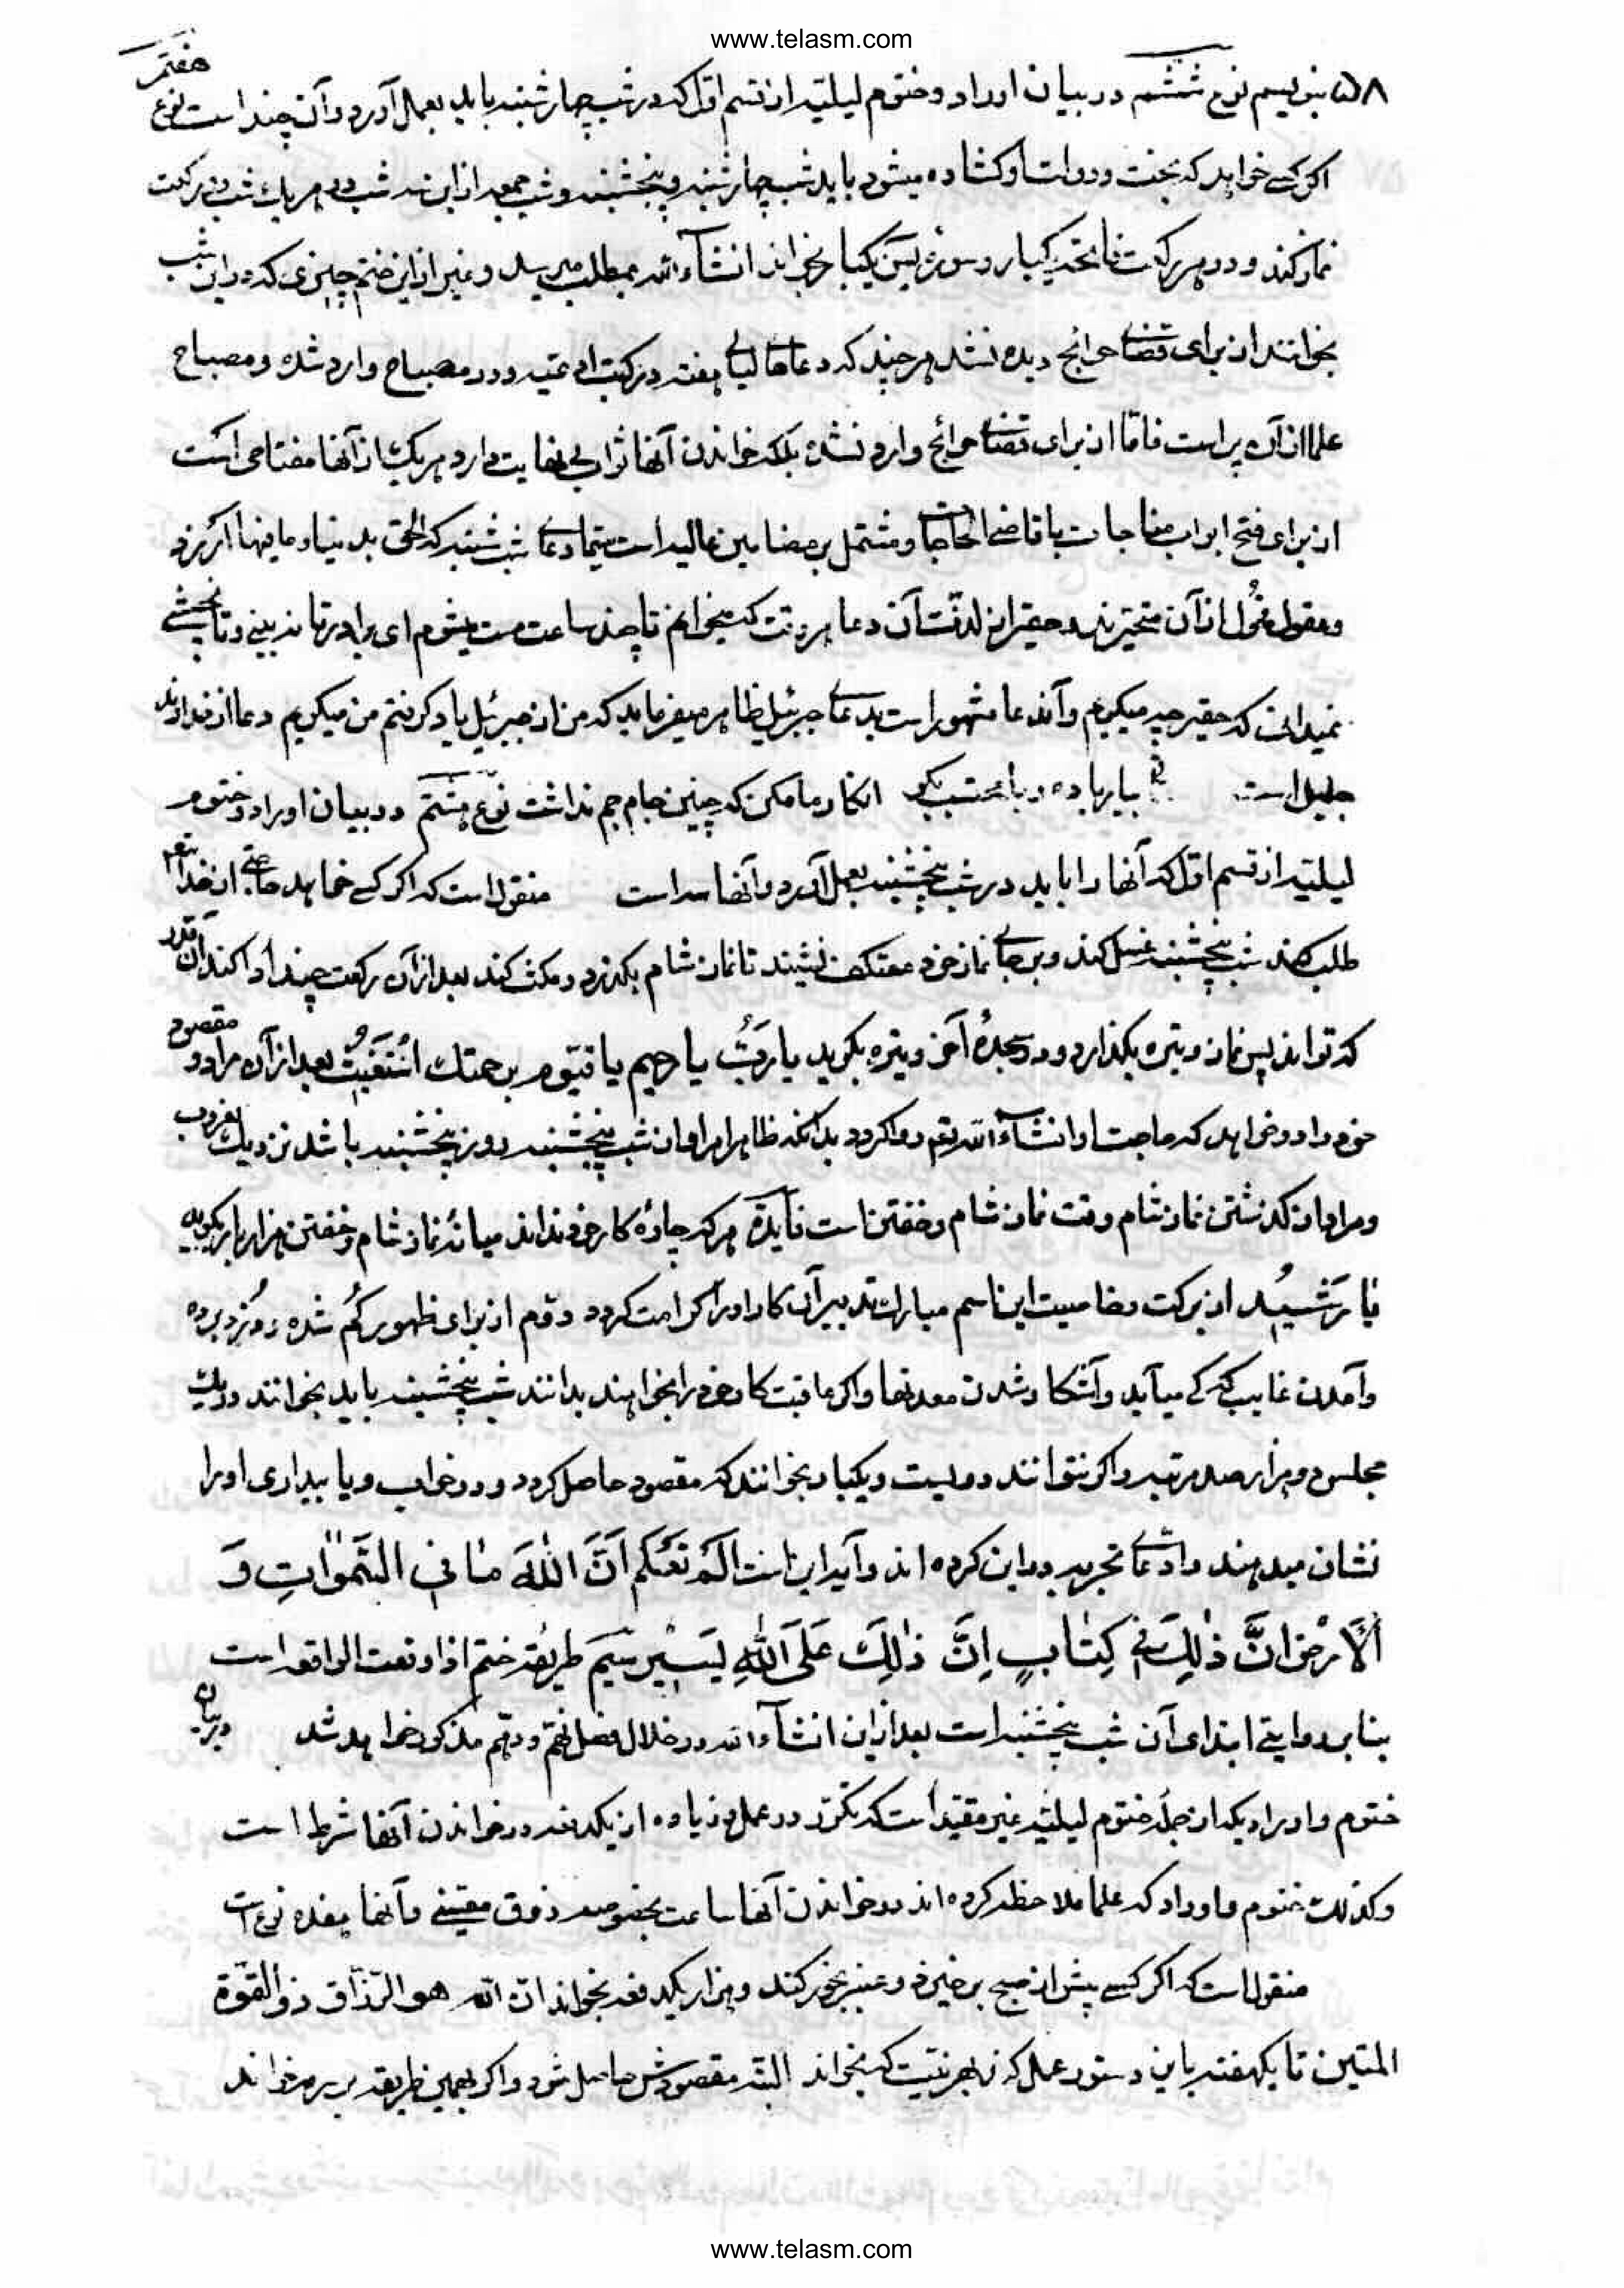 www.telasm.com
۵۸ بنویسیم نوع ششم در بیان اوراد و ختوم لیلیّه از قسم اوّل که در شب چهارشنبه باید بعمل آورد و آن چند است نوع هفتم
اگر کسی خواهد که بخت و دولت او کشاده میشود باید شب چهارشنبه و پنجشنبه و شب جمعه از این سه شب در هر یک شب دو رکعت
نماز کند و در هر رکعت فاتحه یکبار و سوره یس یکبار بخواند انشاء الله بمطلب میرسد و غیر از این ختم چیزی که در این شب
بخوانند از برای قضای حوائج دیده نشد هر چند که دعاهای لیالی هفته در کتب ادعیه و در مصباح وارد شده و مصباح
علما از آن پر است فامّا از برای قضای حوائج وارد نشده بلکه خواندن آنها ثواب بی نهایت دارد هر یک از آنها مفتاحی است
از برای فتح ابواب مناجات با قاضی الحاجات و مشتمل بر مضامین عالیه است سیّما دعای شب شنبه که الحق بدنیا و ما فیها ارزد
و عقول فحول از آن متحیّرند و حقیر از لذّت آن دعا هر وقت که میخوانم تا چند ساعت مست میشوم ای برادر تا نه بینی و تا نچشی
نمیدانی که حقیر چه میگویم و آندعا مشهور است بدعای جبرئیل ظاهر میفرماید که من از جبرئیل یاد گرفتم من میگویم دعا از خداوند
جلیل است بیار باده و با محتسب بگو انکار ما مکن که چنین جام جم نداشت نوع هشتم در بیان اوراد و ختوم
لیلیّه از قسم اوّل که آنها را باید در شب پنجشنبه بعمل آورد و آنها سه است منقول است که اگر کسی خواهد حاجتی از خدایتعالی
طلب کند شب پنجشنبه غسل کند و بر جای نماز خود معتکف نشیند تا نماز شام بگذرد و مکث کند بعد از آن رکعت چند ادا کند آن قدر
که تواند پس نماز وتیره بگذارد و در سجدهٔ آخر وتیره بگوید یا رَبُّ یا رحیم یا قیّوم برحمتک اَستَغیثُ بعد از آن مراد و مقصود
خود را درخواهد که حاجت او انشاء الله تع روا گردد بدانکه ظاهرا مراد از شب پنجشنبه روز پنجشنبه باشد نزدیک بغروب
و مراد از گذشتن نماز شام وقت نماز شام و خفتن است فایدة هر که چارهٔ کار خود نداند میانهٔ نماز شام و خفتن هزار بار بگوید
یا رَشیدُ از برکت و خاصیت این اسم مبارک تدبیر آن کار او را کرامت گردد دوّم از برای ظهور گم شده و دزد برده
و آمدن غایب که کی میآید و آشکار شدن معدنها و اگر عاقبت کار خود را بخواهند بدانند شب پنجشنبه باید بخوانند در یک
مجلس دو هزار صد مرتبه و اگر نتوانند دویست و یکبار بخوانند که مقصود حاصل گردد و در خواب و یا بیداری او را
نشان میدهند و ادّعای تجربه در این کرده اند و آیه این است اَلَم تَعلَم اَنَّ اللهَ ما فی السَّمواتِ وَ
الاَرضِ اِنَّ ذٰلِکَ فی کِتابٍ اِنَّ ذٰلِکَ عَلَی اللهِ یَسیر سیّم طریقه ختم اذا وقعت الواقعه است
بنابر روایتی ابتدای آن شب پنجشنبه است بعد از این انشاء الله در خلال فصل نهم و دهم مذکور خواهد شد در بیان
ختوم و اوراد یکه از جملهٔ ختوم لیلیّه غیر مقیّد است که تکرّر در عمل و زیاده از یکدفعه در خواندن آنها شرط است
و کذلک ختوم و اوراد که علما ملاحظه کرده اند در خواندن آنها ساعت بخصوصه و وقت معیّنی و آنها هفده نوع است
منقول است که اگر کسی پیش از صبح برخیزد و عنبر بخور کند و هزار یکدفعه بخواند انّ الله هو الرّزّاق ذو القوّة
المتین تا یکهفته باین دستور عمل کند بهر نیّت که بخواند البتّه مقصودش حاصل شود و اگر بهمین طریقه بر سر خواند
www.telasm.com